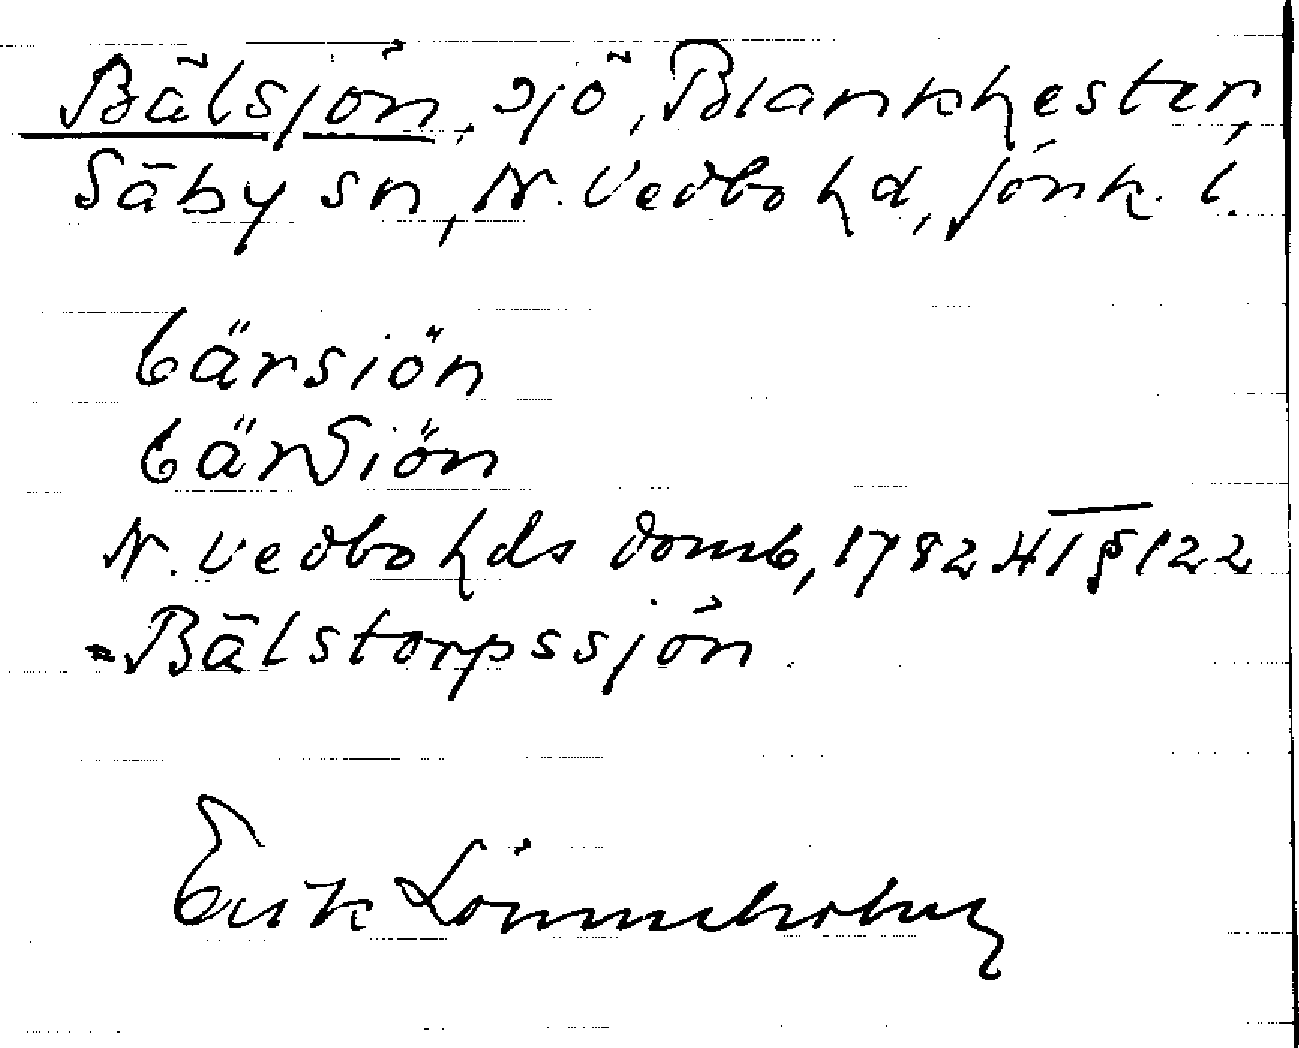 Bälsjön, sjö, Blankhester,
Säby sn, N. Vedbo hd, Jönk. l.
bärsiön
bärSiön
N. Vedbo hds domb, 1782 HT § 122
= Bälstorpssjön.
Erik